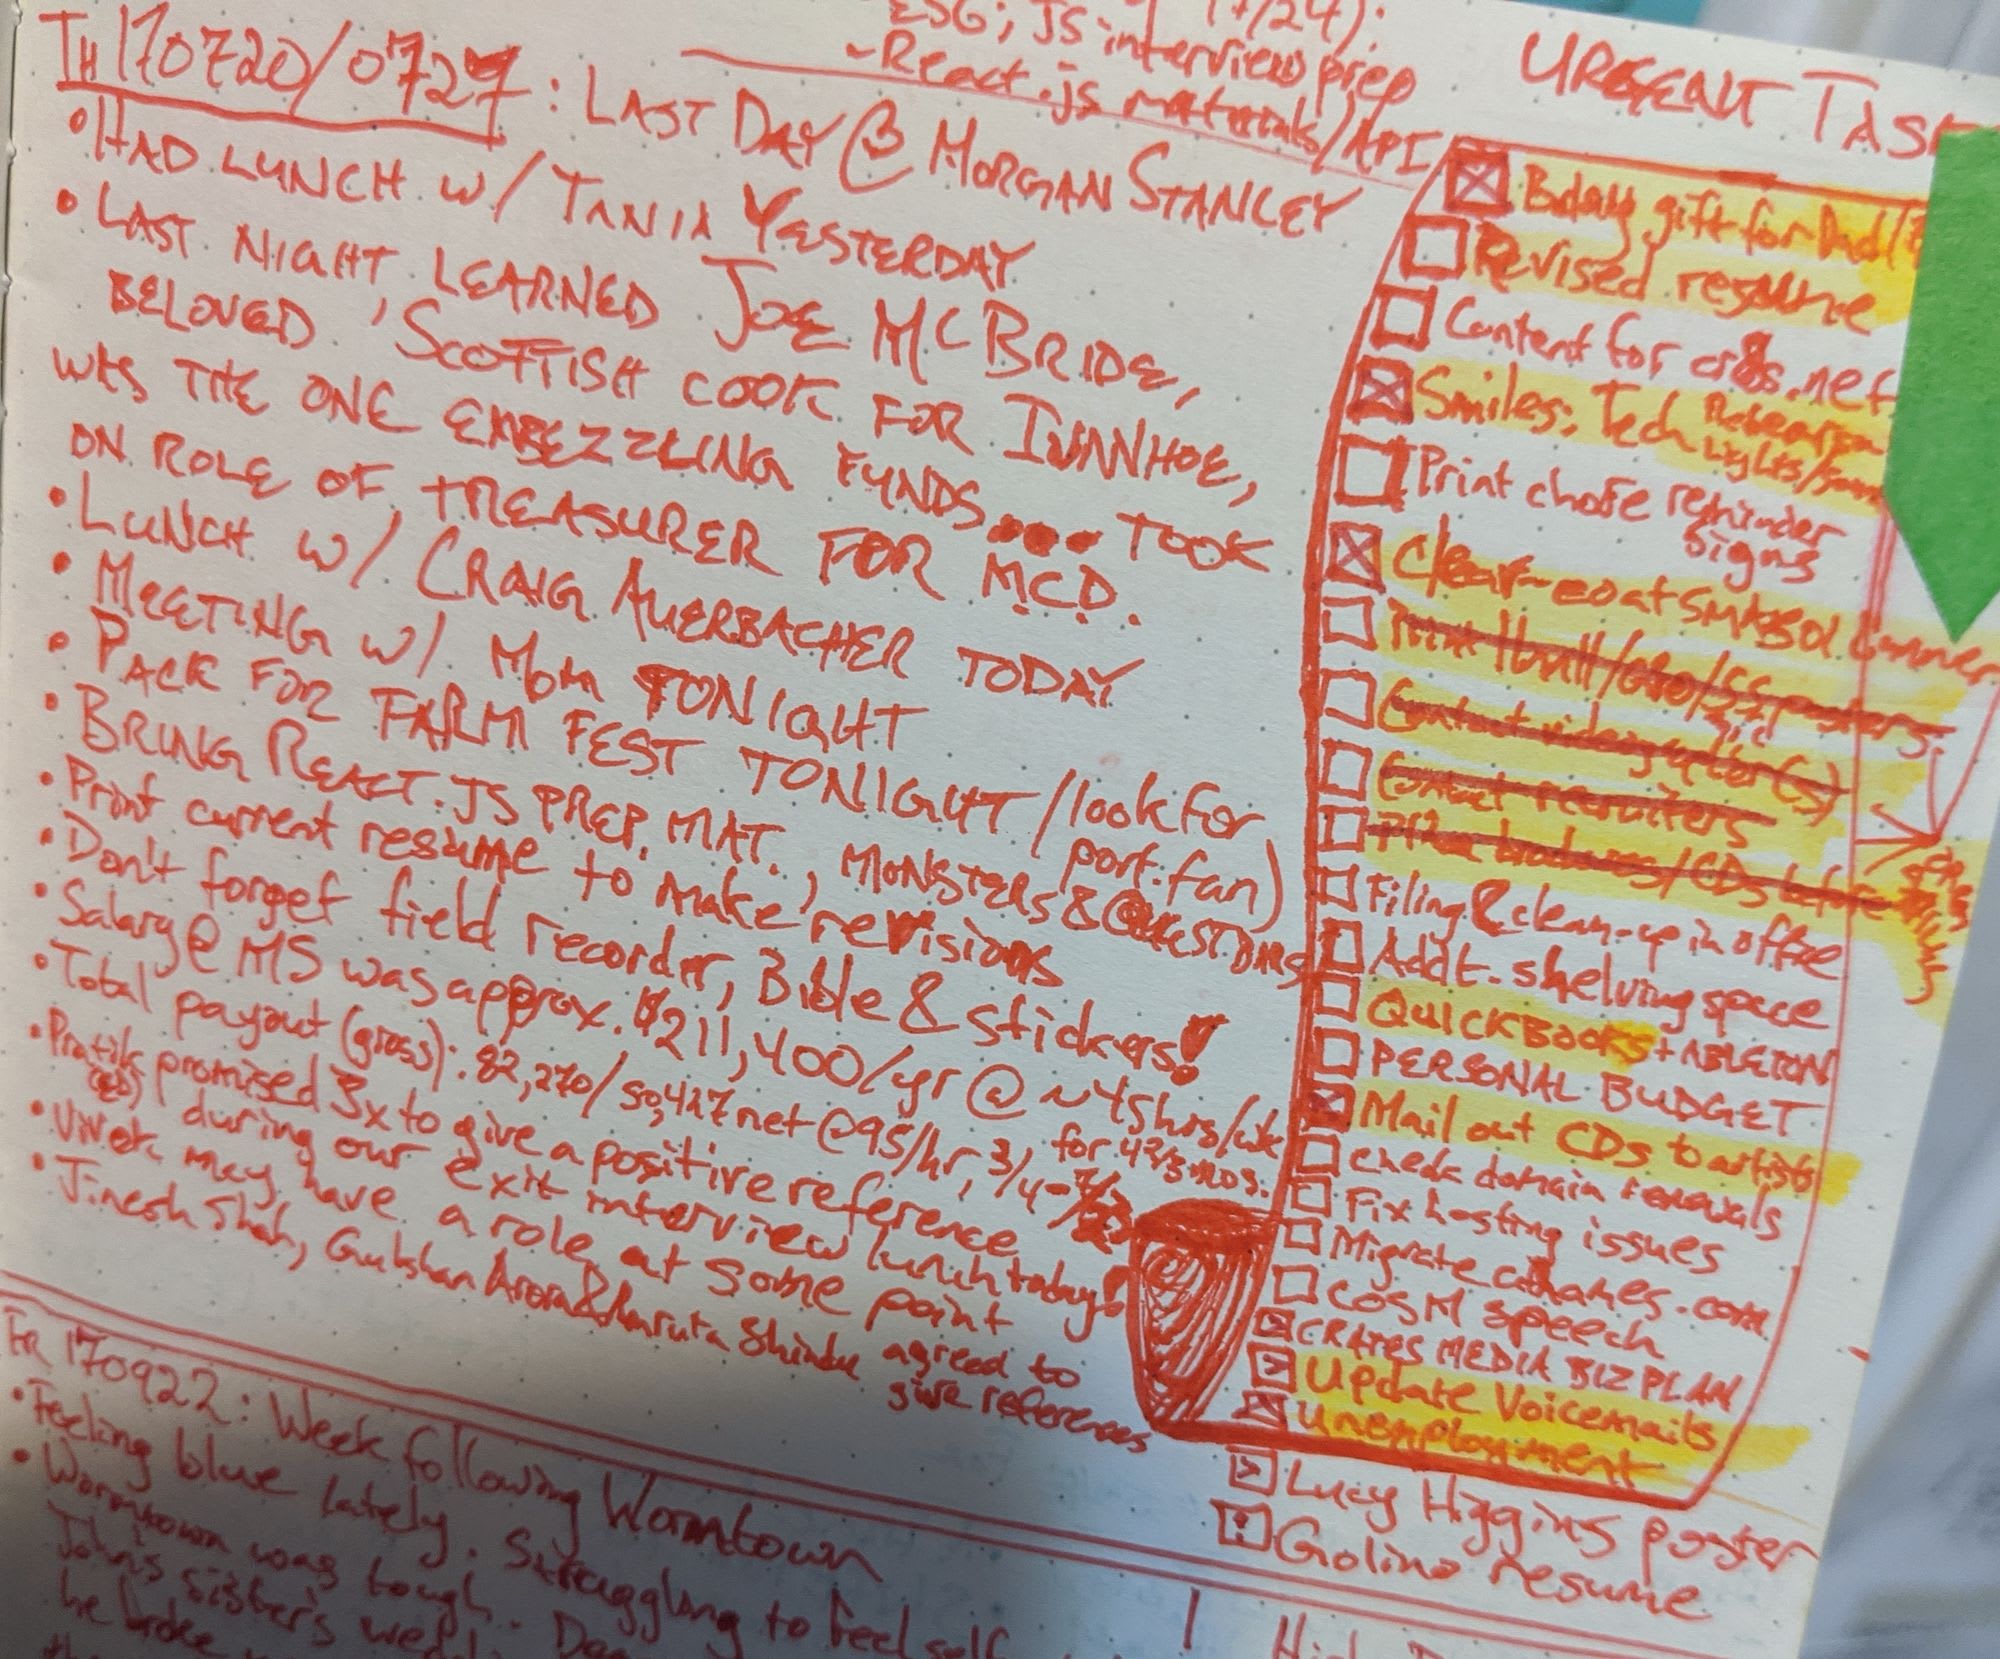 ESG; JS interview prep
- React.js materials/API
TH 170720/0727: LAST DAY @ MORGAN STANLEY
• HAD LUNCH W/ TANIA YESTERDAY
• LAST NIGHT LEARNED JOE MCBRIDE,
BELOVED SCOTTISH COOK FOR IVANHOE,
WAS THE ONE EMBEZZLING FUNDS.... TOOK
ON ROLE OF TREASURER FOR MCD.
• LUNCH W/ CRAIG AUERBACHER TODAY
• MEETING W/ MOM TONIGHT
• PACK FOR FARM FEST TONIGHT /look for
port. fan)
• BRING REACT.JS PREP. MAT., MONSTERS &
• Print current resume to make revisions
• Don't forget field recorder, Bible & stickers!
• Salary @ MS was approx. $211,400/yr @ ~45hrs/wk
• Total payout (gross): 82,270/50,427 net @ 95/hr, 3/4-
for 4 2/3 mos.
• Pratik promised 3x to give a positive reference
during our exit interview lunch today!
• Vivek may have a role at some point
• Jinesh Shah, Gulshan Arora & Amruta Shinde agreed to
give references
FR 170922: Week following Wormtown
• Feeling blue lately. Struggling to feel self
• Wormtown was tough.
John's sister's
he broke
URGENT TASK
Bday gift for Dad/
Revised resume
Content for cr8s.net
Smiles: Tech Rehearsal
Lights/
Print chore reminder
signs
Clear-coat SMABOL banner
Contact videographer(s)
Contact recruiters
Filing & clean-up in office
Addt. shelving space
QUICKBOOKS + ABLETON
PERSONAL BUDGET
Mail out CDs to artists
Check domain renewals
Fix hosting issues
Migrate
COSM speech
CRATES MEDIA BIZ PLAN
Update Voicemails
Unemployment
Lucy Higgins poster
Golino resume